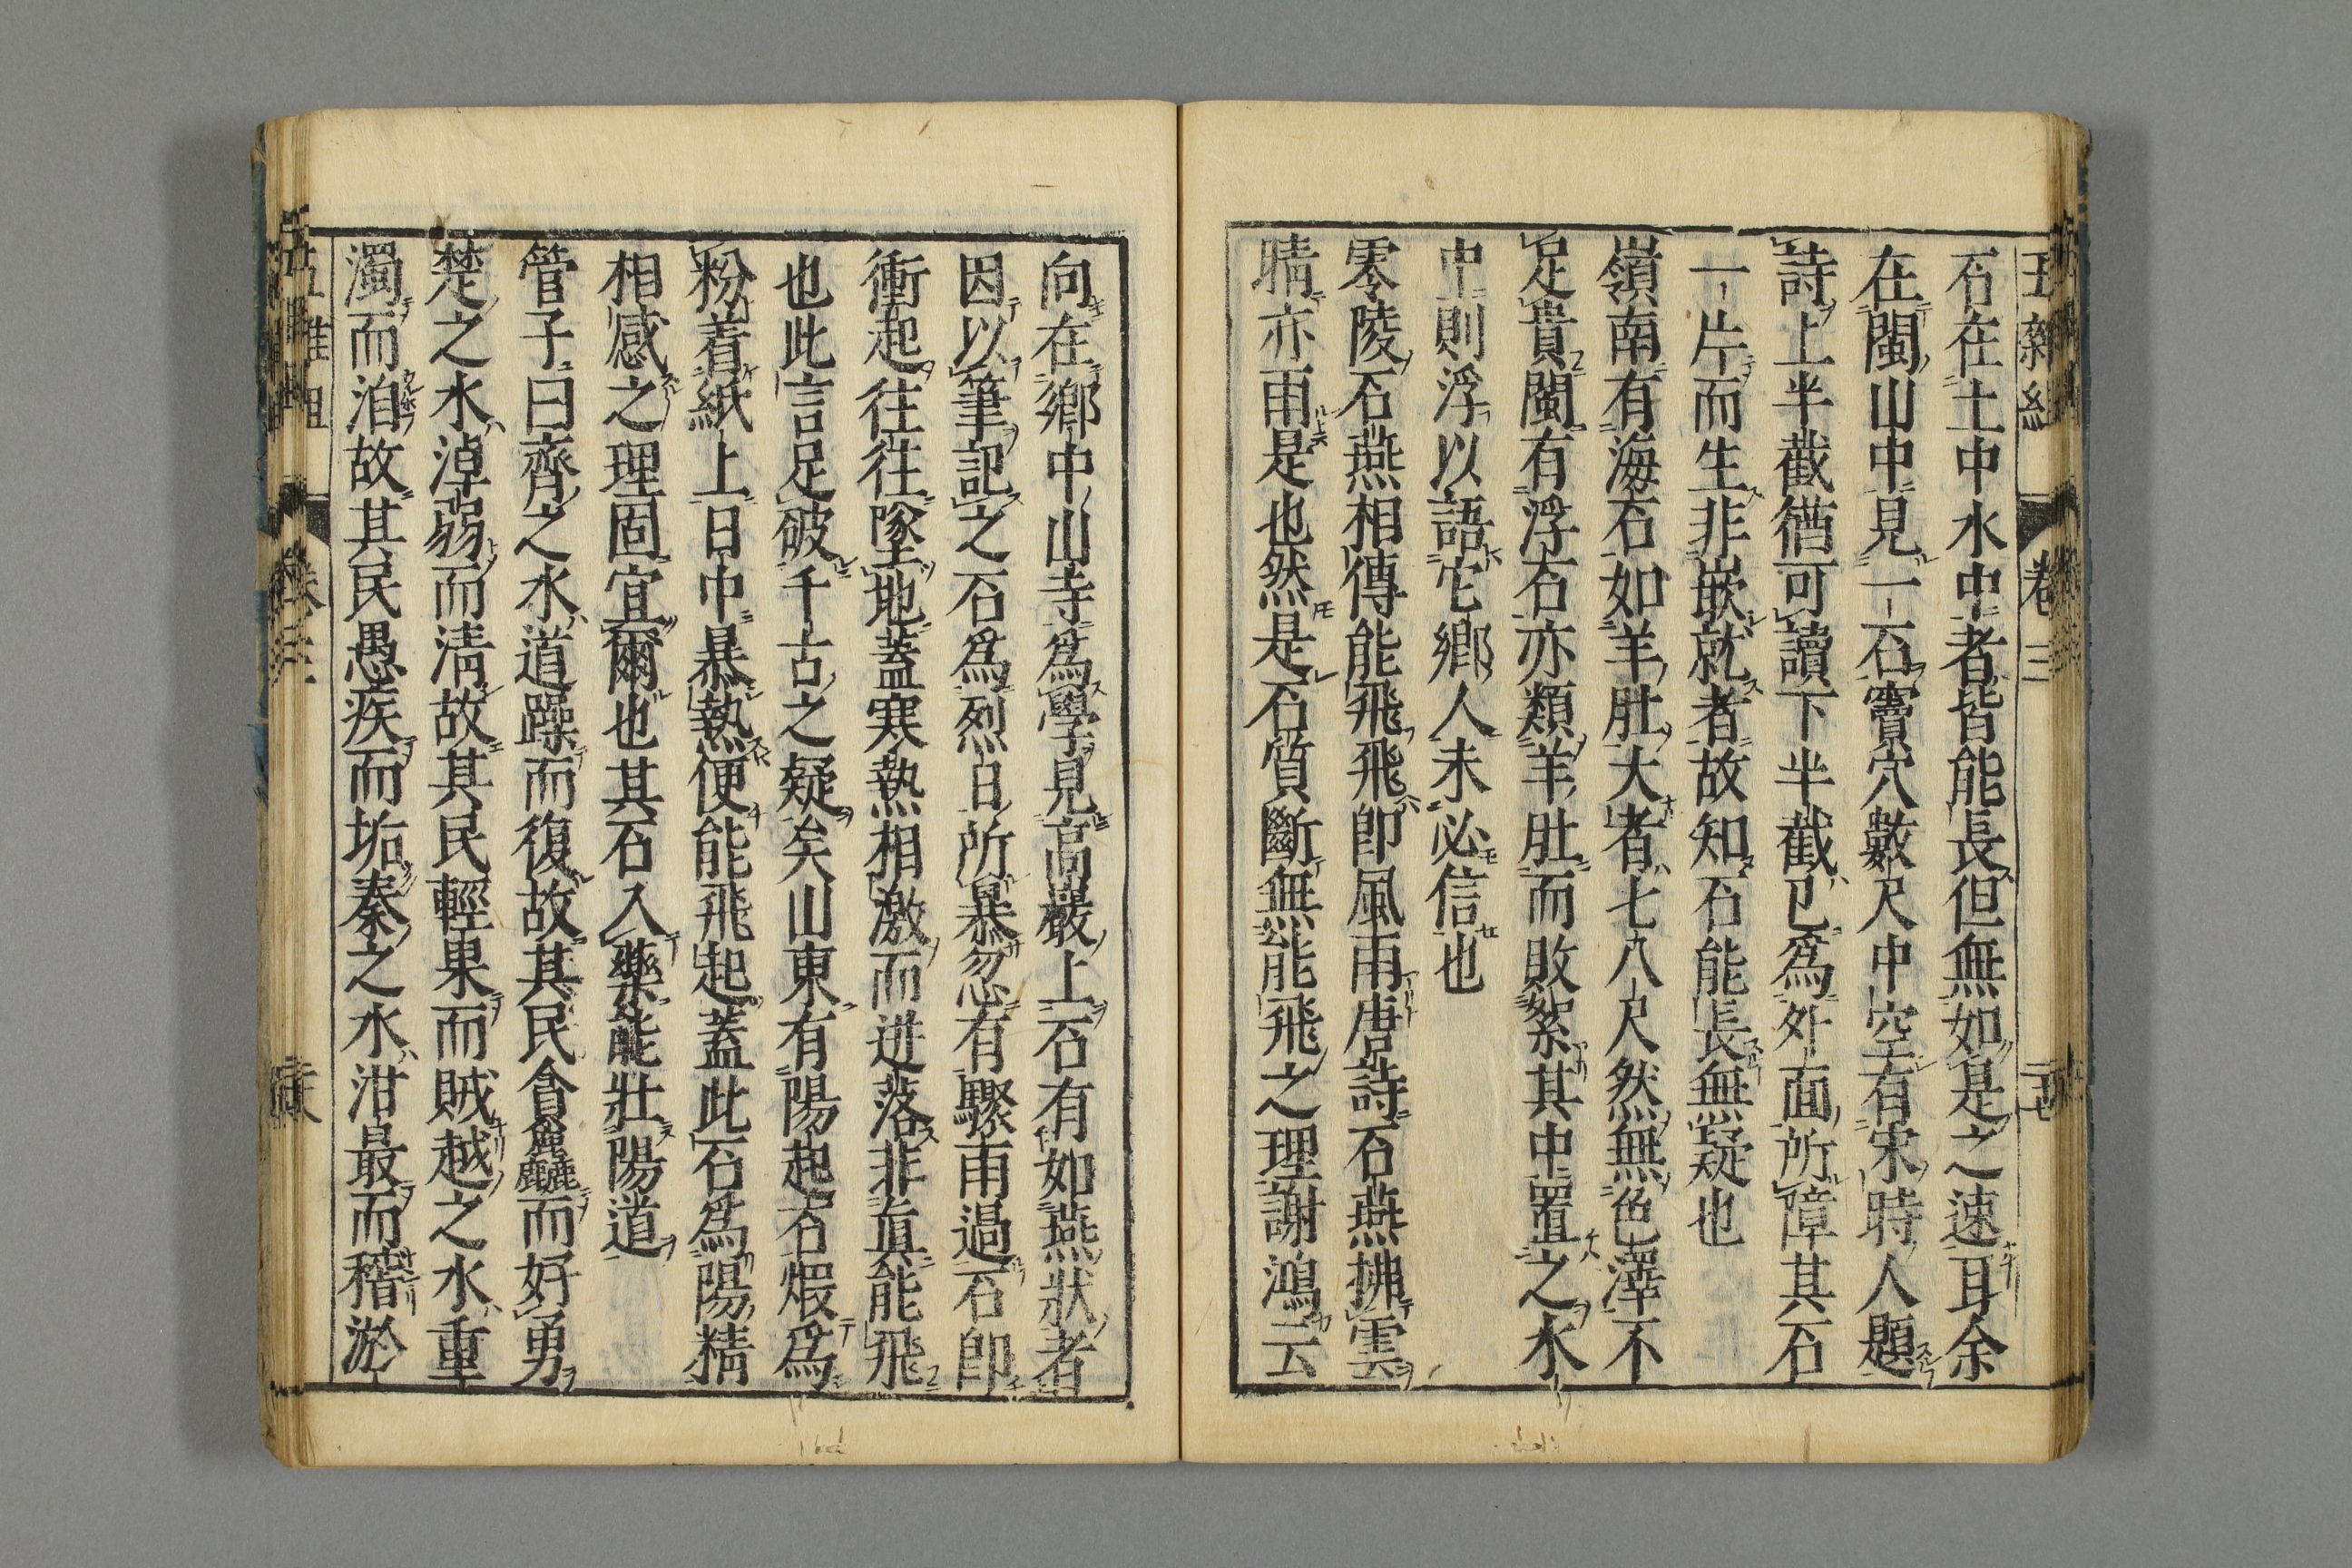 五雜組 卷三 三十七
石在土中水中者皆能長但無如是之速耳余
在閩山中見一石竇穴數尺中空有宋時人題
詩上半截猶可讀下半截已爲外面所障其石
一片而生非嵌就者故知石能長無疑也
嶺南有海石如羊肚大者七八尺然無色澤不
足貴閩有浮石亦類羊肚而敗絮其中置之水
中則浮以語它鄉人未必信也
零陵石燕相傳能飛飛卽風雨唐詩石燕拂雲
晴亦雨是也然是石質斷無能飛之理謝鴻云
向在鄉中山寺爲學見高巖上石有如燕狀者
因以筆記之石爲烈日所暴忽有驟雨過石卽
衝起往往墜地蓋寒熱相激而迸落非眞能飛
也此言足破千古之疑矣山東有陽起石煆爲
粉着紙上日中暴熱便能飛起蓋此石爲陽精
相感之理固宜爾也其石入藥能壯陽道
管子曰齊之水道躁而復故其民貪麤而好勇
楚之水淖弱而淸故其民輕果而賊越之水重
濁而洎故其民愚疾而垢秦之水泔最而稽淤
五雜組 卷三